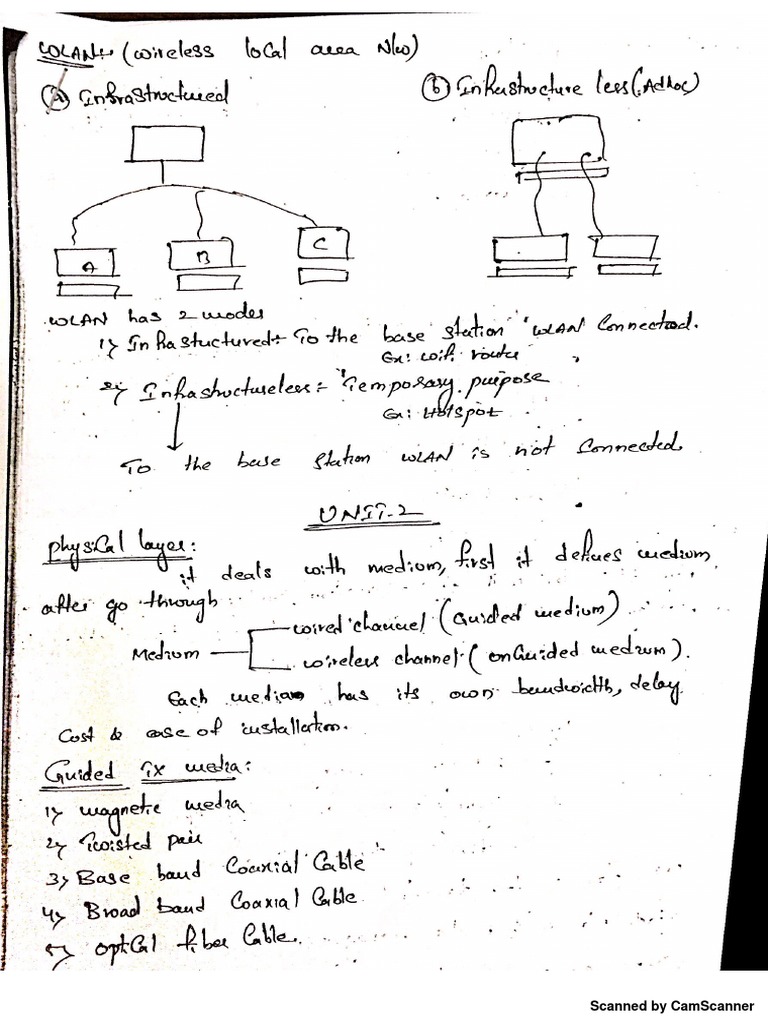 WLAN:- (wireless local area N/w)
(a) Infrastructured
(b) Infrastructure less (Adhoc)
A
B
C
WLAN has 2 modes
1) Infrastuctured:- To the base station WLAN Connected.
Ex: wifi router
2) Infrastructureless:- Temporary purpose
Ex: Hotspot
To the base station WLAN is not Connected.
UNIT-2
physical layer:
it deals with medium, first it defines medium
after go through
wired channel (Guided medium)
Medium
wireless channel (unGuided medium).
Each median has its own bandwidth, delay
Cost & ease of installation.
Guided Tx media:
1) magnetic media
2) Twisted pair
3) Base band Coaxial Cable
4) Broad band Coaxial Cable
5) optical fiber Cable.
Scanned by CamScanner